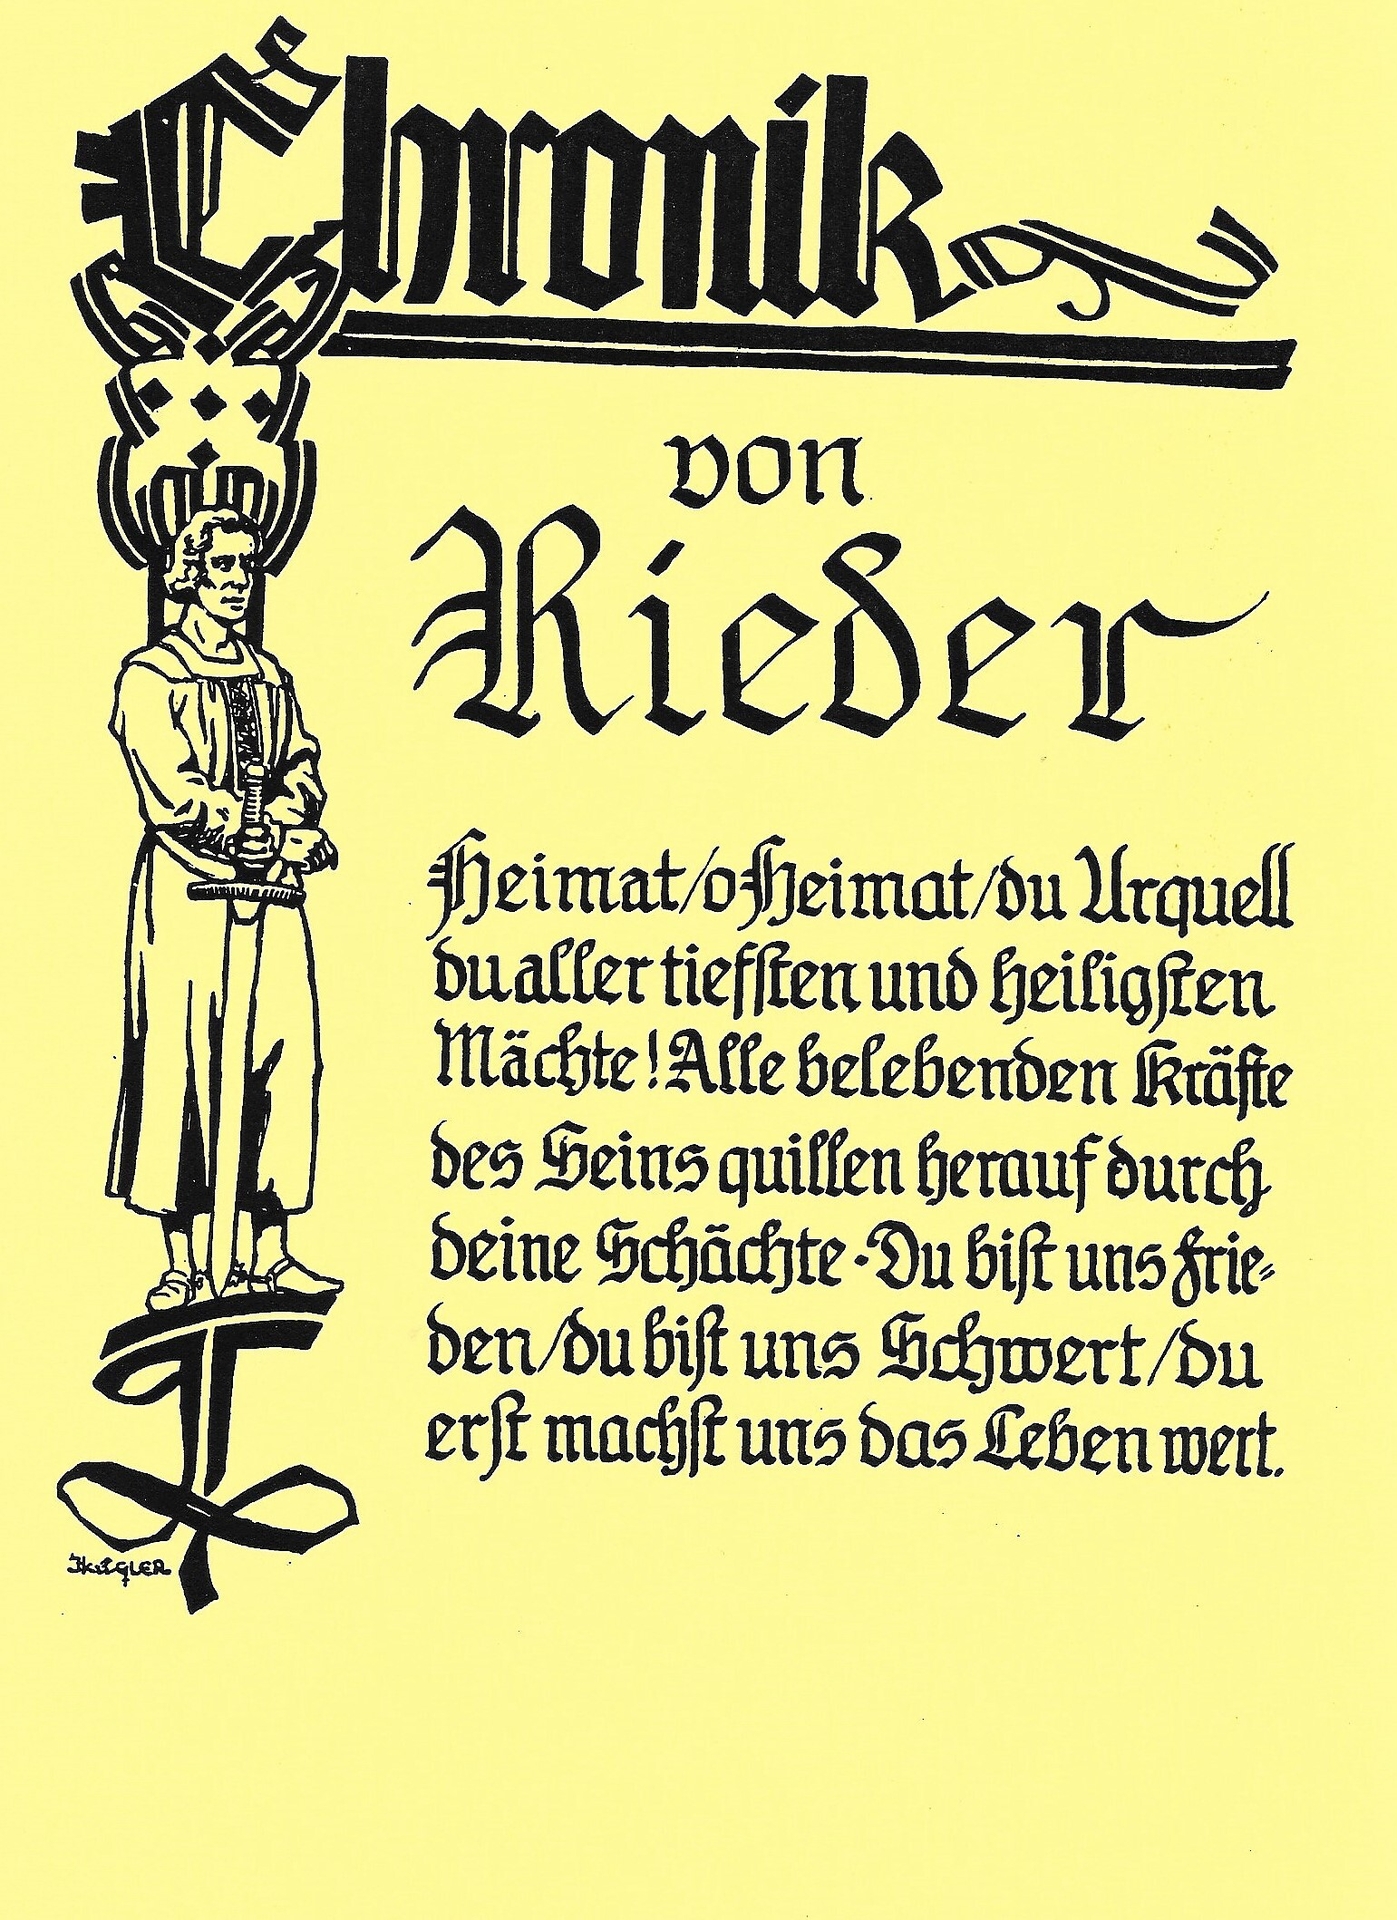 Chronik
von
Rieder
Heimat/o Heimat/du Urquell
du aller tiefsten und heiligsten
Mächte! Alle belebenden Kräfte
des Seins quillen herauf durch
deine Schächte · Du bist uns Frie-
den/du bist uns Schwert/du
erst machst uns das Leben wert.